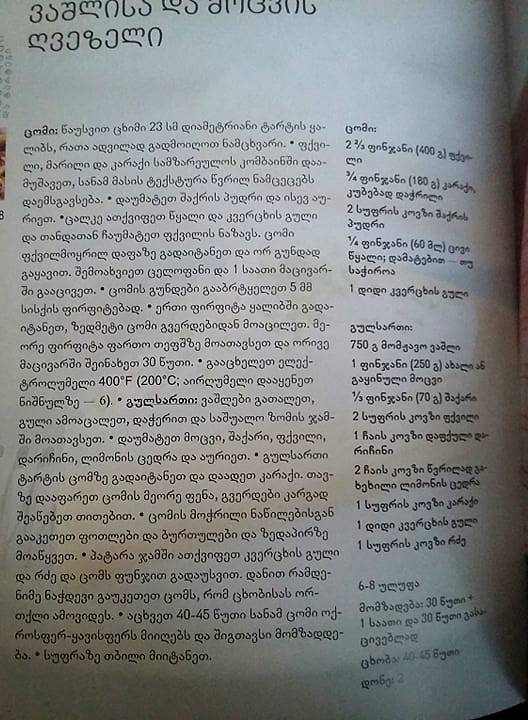 ვაშლისა და მოცვის
ღვეზელი
ცომი: წაუსვით ცხიმი 23 სმ დიამეტრიანი ტარტის ყა-
ლიბს, რათა ადვილად გადმოიღოთ ნამცხვარი. • ფქვი-
ლი, მარილი და კარაქი სამზარეულოს კომბაინში დაა-
მუშავეთ, სანამ მასის ტექსტურა წვრილ ნამცეცებს
დაემსგავსება. • დაუმატეთ შაქრის პუდრი და ისევ აუ-
რიეთ. •ცალკე ათქვიფეთ წყალი და კვერცხის გული
და თანდათან ჩაუმატეთ ფქვილის ნაზავს. ცომი
ფქვილმოყრილ დაფაზე გადაიტანეთ და ორ გუნდად
გაყავით. შემოახვიეთ ცელოფანი და 1 საათი მაცივარ-
ში გააცივეთ. • ცომის გუნდები გააბრტყელეთ 5 მმ
სისქის ფირფიტებად. • ერთი ფირფიტა ყალიბში გადა-
იტანეთ, ზედმეტი ცომი გვერდებიდან მოაცილეთ. მე-
ორე ფირფიტა ფართო თეფშზე მოათავსეთ და ორივე
მაცივარში შეინახეთ 30 წუთი. • გააცხელეთ ელექ-
ტროღუმელი 400°F (200°C; აირღუმელი დააყენეთ
ნიშნულზე — 6). • გულსართი: ვაშლები გათალეთ,
გული ამოაცალეთ, დაჭერით და საშუალო ზომის ჯამ-
ში მოათავსეთ. • დაუმატეთ მოცვი, შაქარი, ფქვილი,
დარიჩინი, ლიმონის ცედრა და აურიეთ. • გულსართი
ტარტის ცომზე გადაიტანეთ და დაადეთ კარაქი. თავ-
ზე დააფარეთ ცომის მეორე ფენა, გვერდები კარგად
შეაწებეთ თითებით. • ცომის მოჭრილი ნაწილებისგან
გააკეთეთ ფოთლები და ბურთულები და ზედაპირზე
მოაწყვეთ. • პატარა ჯამში ათქვიფეთ კვერცხის გული
და რძე და ცომს ფუნჯით გადაუსვით. დანით რამდე-
ნიმე ნაჭდევი გაუკეთეთ ცომს, რომ ცხობისას ორ-
თქლი ამოვიდეს. • აცხვეთ 40-45 წუთი სანამ ცომი ოქ-
როსფერ-ყავისფერს მიიღებს და შიგთავსი მომზადდე-
ბა. • სუფრაზე თბილი მიიტანეთ.
ცომი:
2 ⅔ ფინჯანი (400 გ) ფქვი-
ლი
¾ ფინჯანი (180 გ) კარაქი,
კუბებად დაჭრილი
2 სუფრის კოვზი შაქრის
პუდრი
¼ ფინჯანი (60 მლ) ცივი
წყალი; დამატებით — თუ
საჭიროა
1 დიდი კვერცხის გული
გულსართი:
750 გ მომჟავო ვაშლი
1 ფინჯანი (250 გ) ახალი ან
გაყინული მოცვი
⅓ ფინჯანი (70 გ) შაქარი
2 სუფრის კოვზი ფქვილი
1 ჩაის კოვზი დაფქული და-
რიჩინი
2 ჩაის კოვზი წვრილად გა-
ხეხილი ლიმონის ცედრა
1 სუფრის კოვზი კარაქი
1 დიდი კვერცხის გული
1 სუფრის კოვზი რძე
6-8 ულუფა
მომზადება: 30 წუთი +
1 საათი და 30 წუთი გასა-
ცივებლად
ცხობა: 40-45 წუთი
დონე: 2